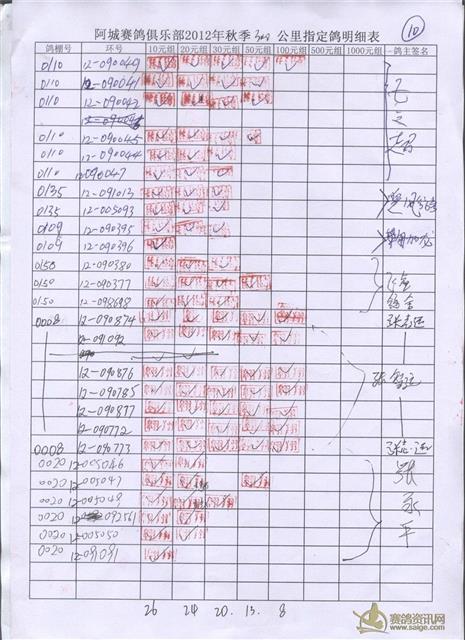 阿城赛鸽俱乐部2012年秋季300公里指定鸽明细表
10
鸽棚号 环号 10元组 20元组 30元组 50元组 100元组 500元组 1000元组 鸽主签名
0110 12-090049
0110 12-090041
0110 12-090042
0110 12-090045
0110 12-090044
0110 12-090047
0135 12-091013
0135 12-005093
0109 12-090395
0109 12-090396
0150 12-090380
0150 12-090377
0150 12-098698
0008 12-090874
12-091092
12-090876
12-090785
12-090877
12-090772
0008 12-090773
0020 12-005046
0020 12-005047
0020 12-005048
0020 12-092561
0020 12-005050
0020 12-091091
张永平
26 24 20. 13. 8
赛鸽资讯网
www.saige.com